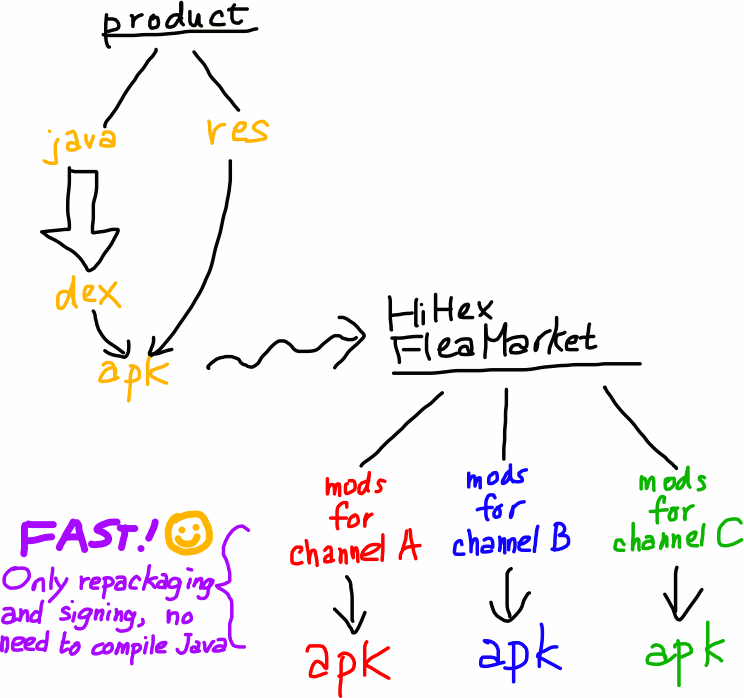 product
java
res
dex
apk
HiHex
FleaMarket
mods
for
channel A
mods
for
channel B
mods
for
channel C
FAST!
Only repackaging
and signing, no
need to compile Java
apk
apk
apk